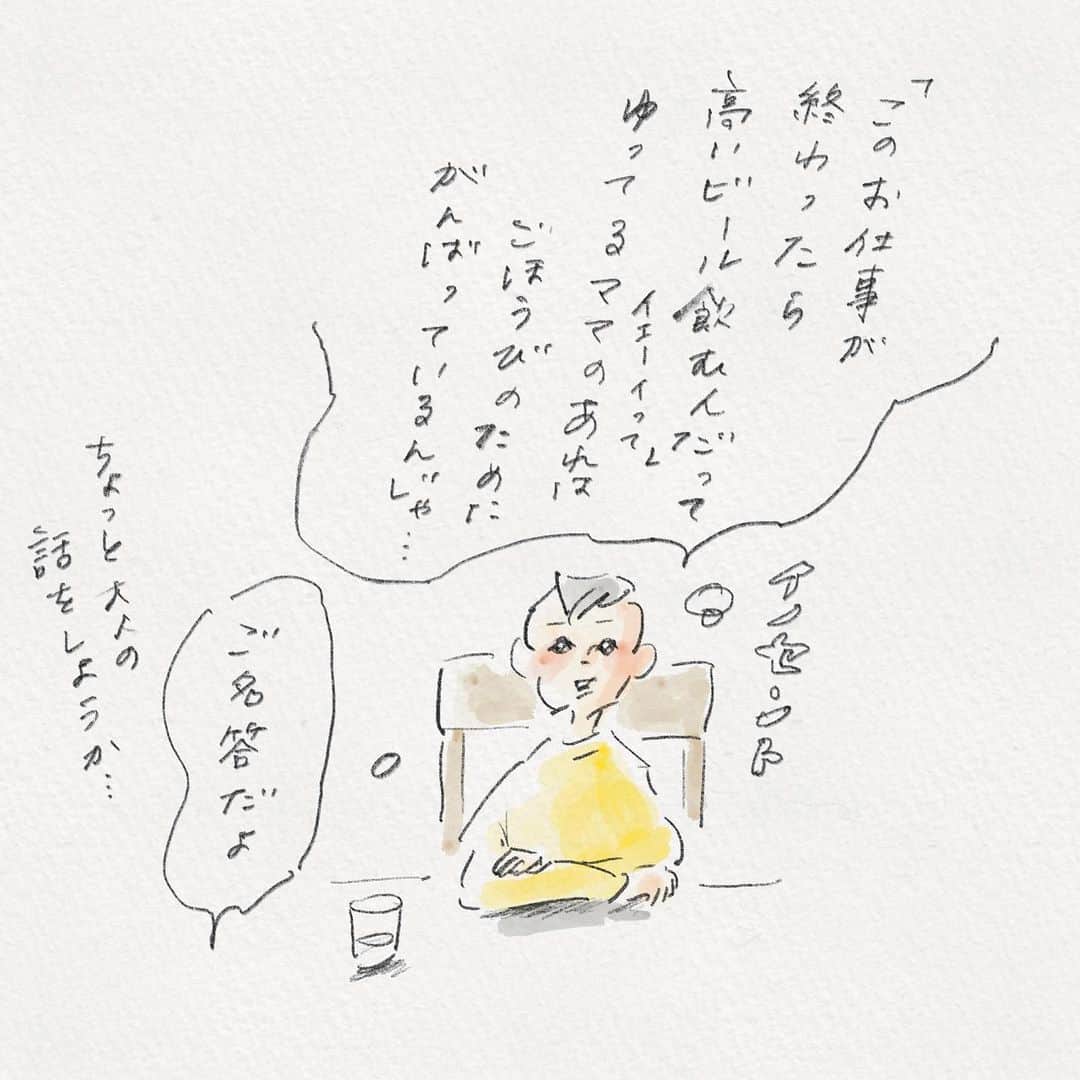 「このお仕事が
終わったら
高いビール飲むんだって
イェーイって」
ゆってるママのあれは
ごほうびのために
がんばっているんじゃ…
ご名答だよ
ちょっと大人の
話をしようか…